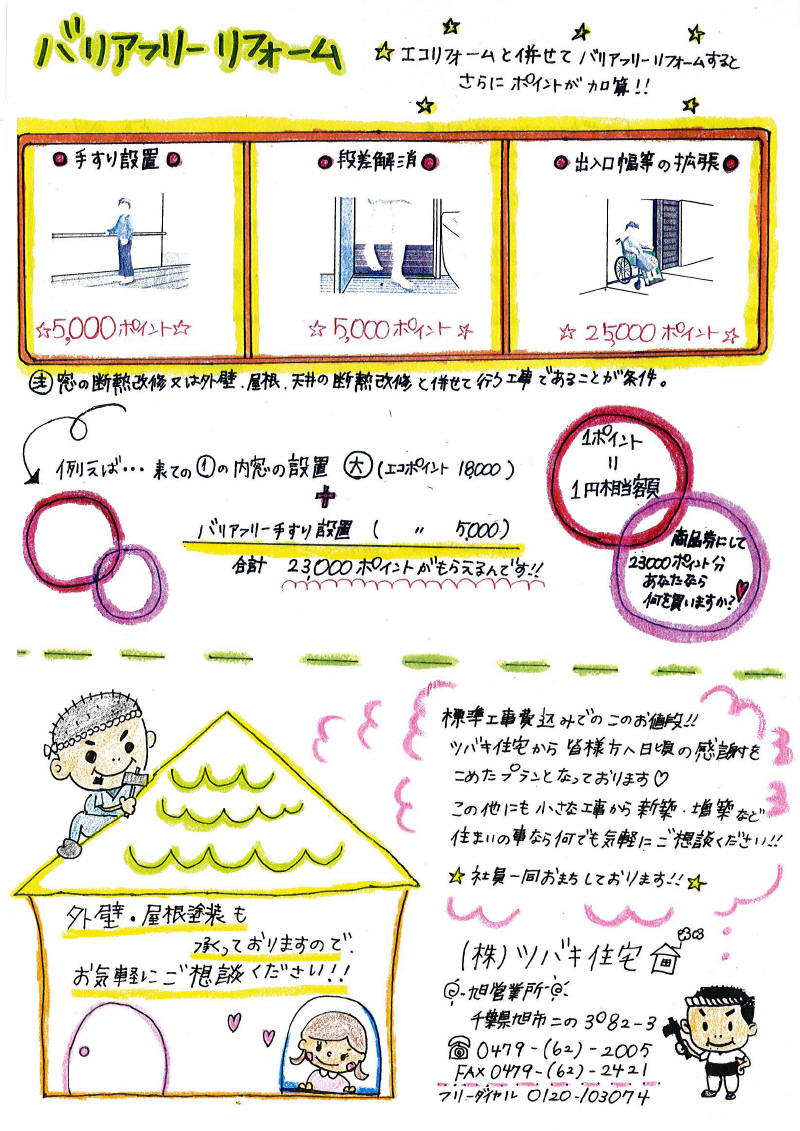 バリアフリーリフォーム
☆エコリフォームと併せてバリアフリーリフォームすると
さらにポイントが加算!!
手すり設置
☆5,000ポイント☆
段差解消
☆5,000ポイント☆
出入口幅等の拡張
☆25,000ポイント☆
㊟窓の断熱改修又は外壁、屋根、天井の断熱改修と併せて行う工事であることが条件。
例えば… 表ての①の内窓の設置 大 (エコポイント 18,000)
+
バリアフリー手すり設置 ( 〃 5,000)
合計 23,000ポイントがもらえるんです!!
1ポイント
=
1円相当額
商品券にして
23000ポイント分
あなたなら
何を買いますか?
標準工事費込みでのこのお値段!!
ツバキ住宅から皆様方へ日頃の感謝を
こめたプランとなっております♡
この他にも小さな工事から新築・増築など
住まいの事なら何でも気軽にご相談ください!!
☆社員一同おまちしております!!☆
外壁・屋根塗装も
承っておりますので、
お気軽にご相談ください!!
(株)ツバキ住宅
旭営業所
千葉県旭市ニの3082-3
☎0479-(62)-2005
FAX 0479-(62)-2421
フリーダイヤル 0120-103074